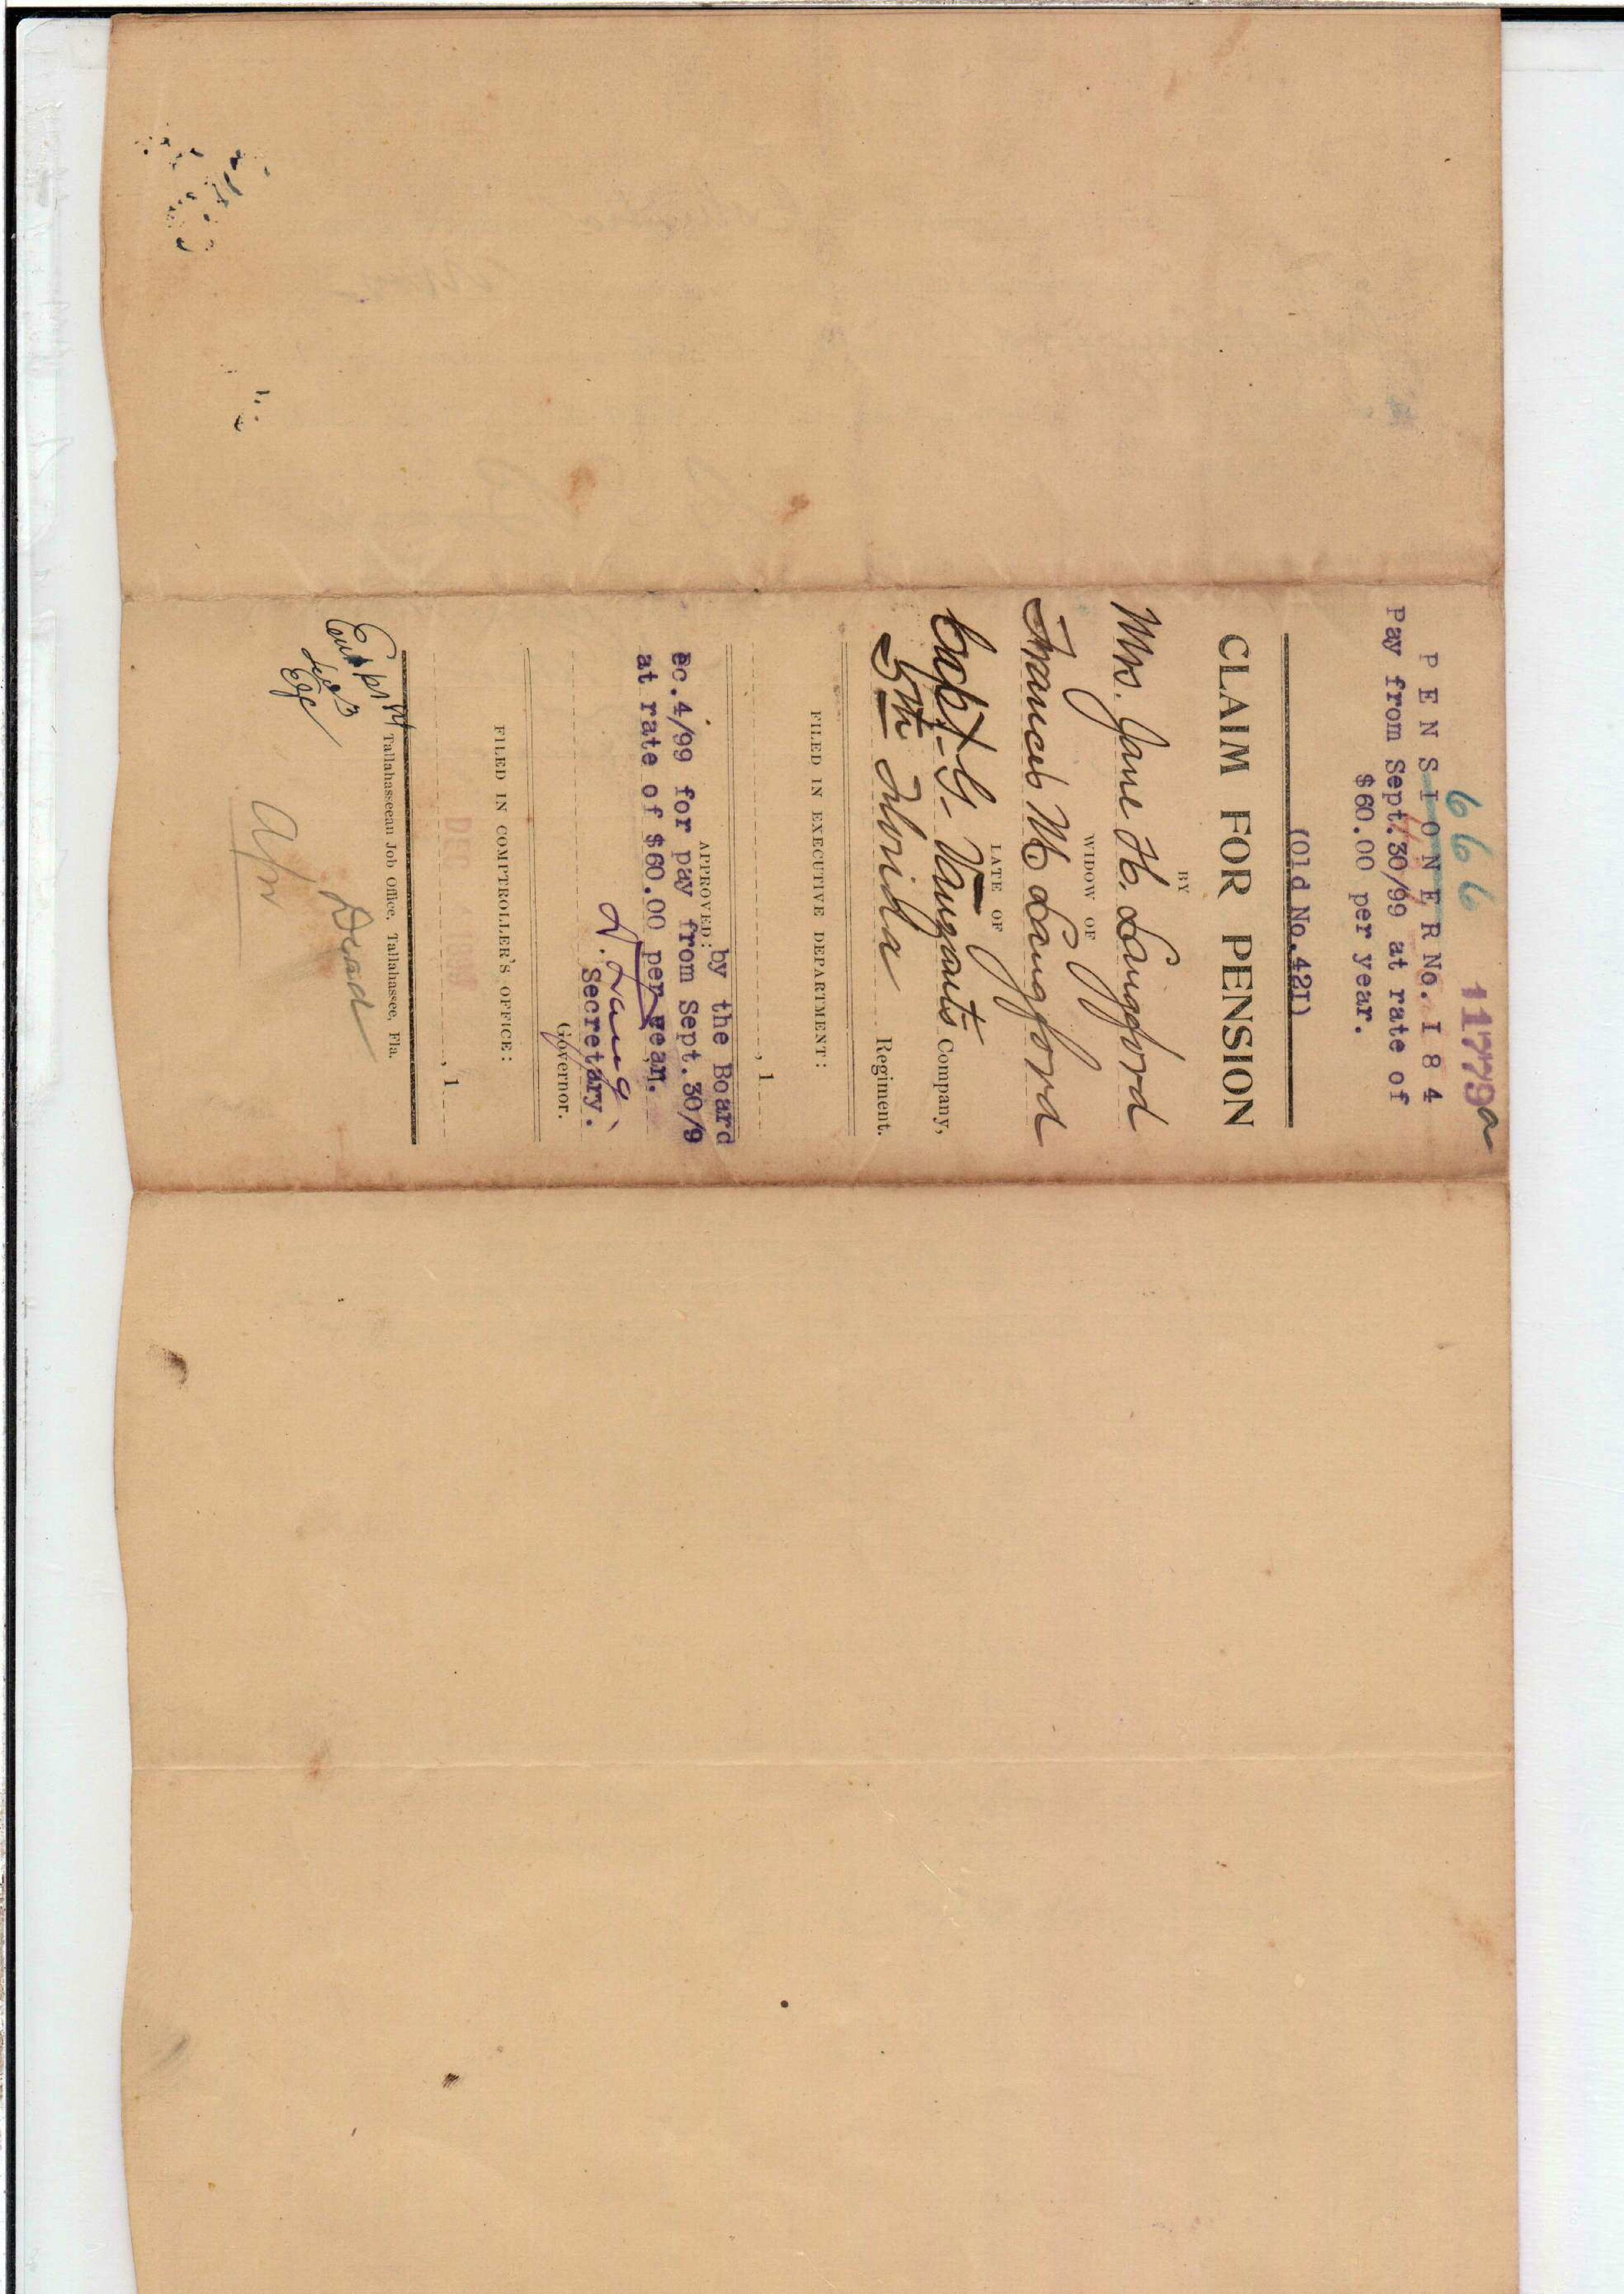 11779a
666
P E N S I O N E R No. I 8 4
Pay from Sept.30/99 at rate of
$60.00 per year.
(Old No.42I)
CLAIM FOR PENSION
BY
Mrs. Jane H. Langford
WIDOW OF
Francis M Langford
LATE OF
Capt. G. Vanzants Company,
5th Florida Regiment.
FILED IN EXECUTIVE DEPARTMENT:
, 1
APPROVED: by the Board
ec.4/99 for pay from Sept.30/9
at rate of $60.00 per year.
D. Lang,
Secretary.
Governor.
FILED IN COMPTROLLER'S OFFICE:
DEC 4 1899
, 1
Tallahasseean Job Office, Tallahassee, Fla.
Dead